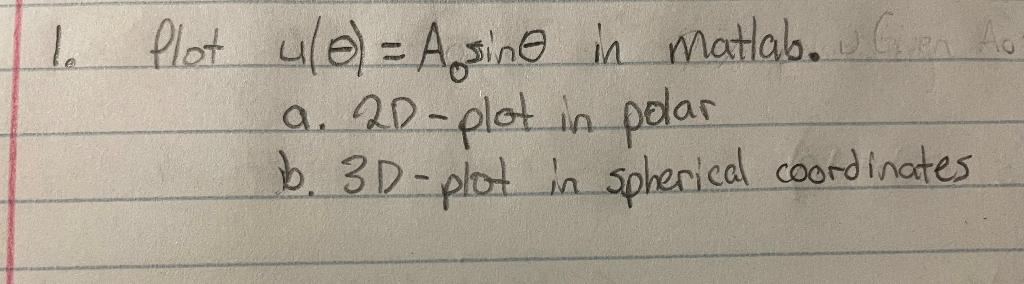 1. Plot u(θ) = A₀sinθ in matlab. Given A₀
a. 2D-plot in polar
b. 3D-plot in spherical coordinates